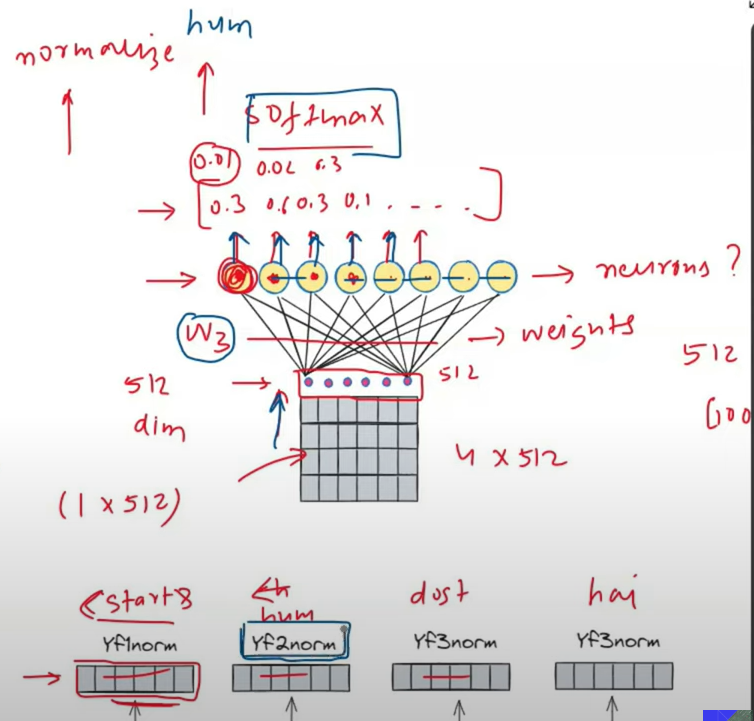 hum
normalize
softmax
0.01 0.02 0.3
[0.3 0.6 0.3 0.1 . - - .]
neurons ?
W3
weights
512
512
512
dim
4 x 512
(1 x 512)
<start>
hum
dost
hai
Yf1norm
Yf2norm
Yf3norm
Yf3norm